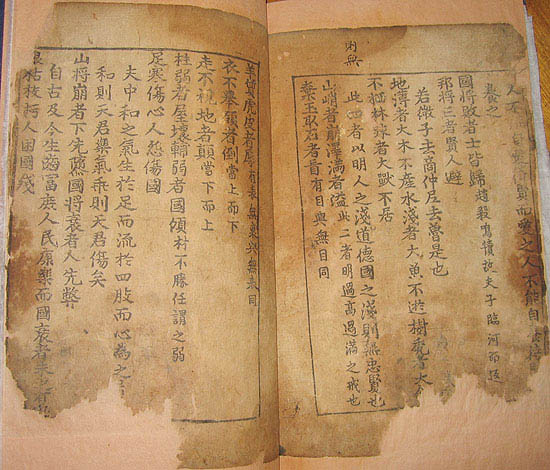 刺無
賢而愛之人不能自
養之
國將敗者士皆歸趙殺鳴犢故夫子臨河而返
邦將亡者賢人避
若微子去商仲尼去魯是也
地薄者大木不産水淺者大魚不遊樹禿者大
不栖林踈者大獸不居
此四者以明人之淺道德國之淺則無忠賢也
山峭者崩澤滿者溢此二者明過高過滿之戒也
棄玉取石者盲有目與無目同
羊質虎皮者辱有表無裏與無表同
衣不擧領者倒當上而下
走不視地者顚當下而上
柱弱者屋壞輔弱者國傾材不勝任謂之弱
足寒傷心人怨傷國
夫中和之氣生於足而流於四肢而心為之
和則天君樂氣乖則天君傷矣
山將崩者下先隳國將衰者人先弊
自古及今生齒富庶人民康樂而國衰者未之有
根枯枝朽人困國殘